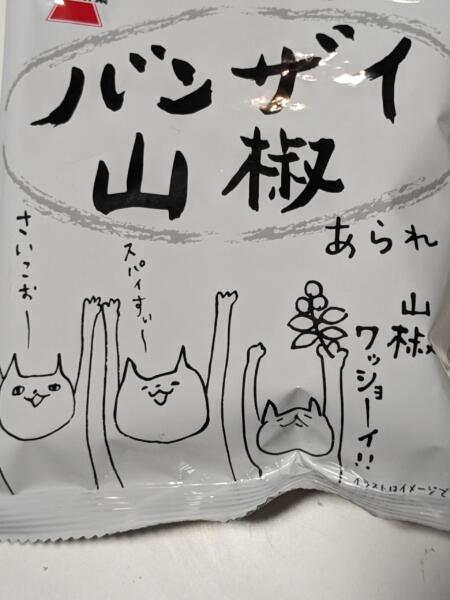 バンザイ
山椒
あられ
さいこおー
スパイすぃ〜
山椒
ワッショーイ!!
イラストはイメージで